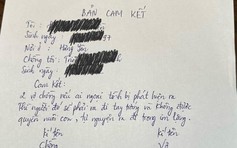 BẢN CAM KẾT
Tôi:
Sinh ngày 97
Nơi ở: Hưng Yên
Chồng tôi: Tr
Sinh ngày:
Cam kết:
2 vợ chồng nếu ai ngoại tình bị phát hiện ra
Thì người đó sẽ phải ra đi tay trắng và không được
quyền nuôi con, tự nguyện ra đi trong im lặng.
kí tên kí tên
Chồng Vợ